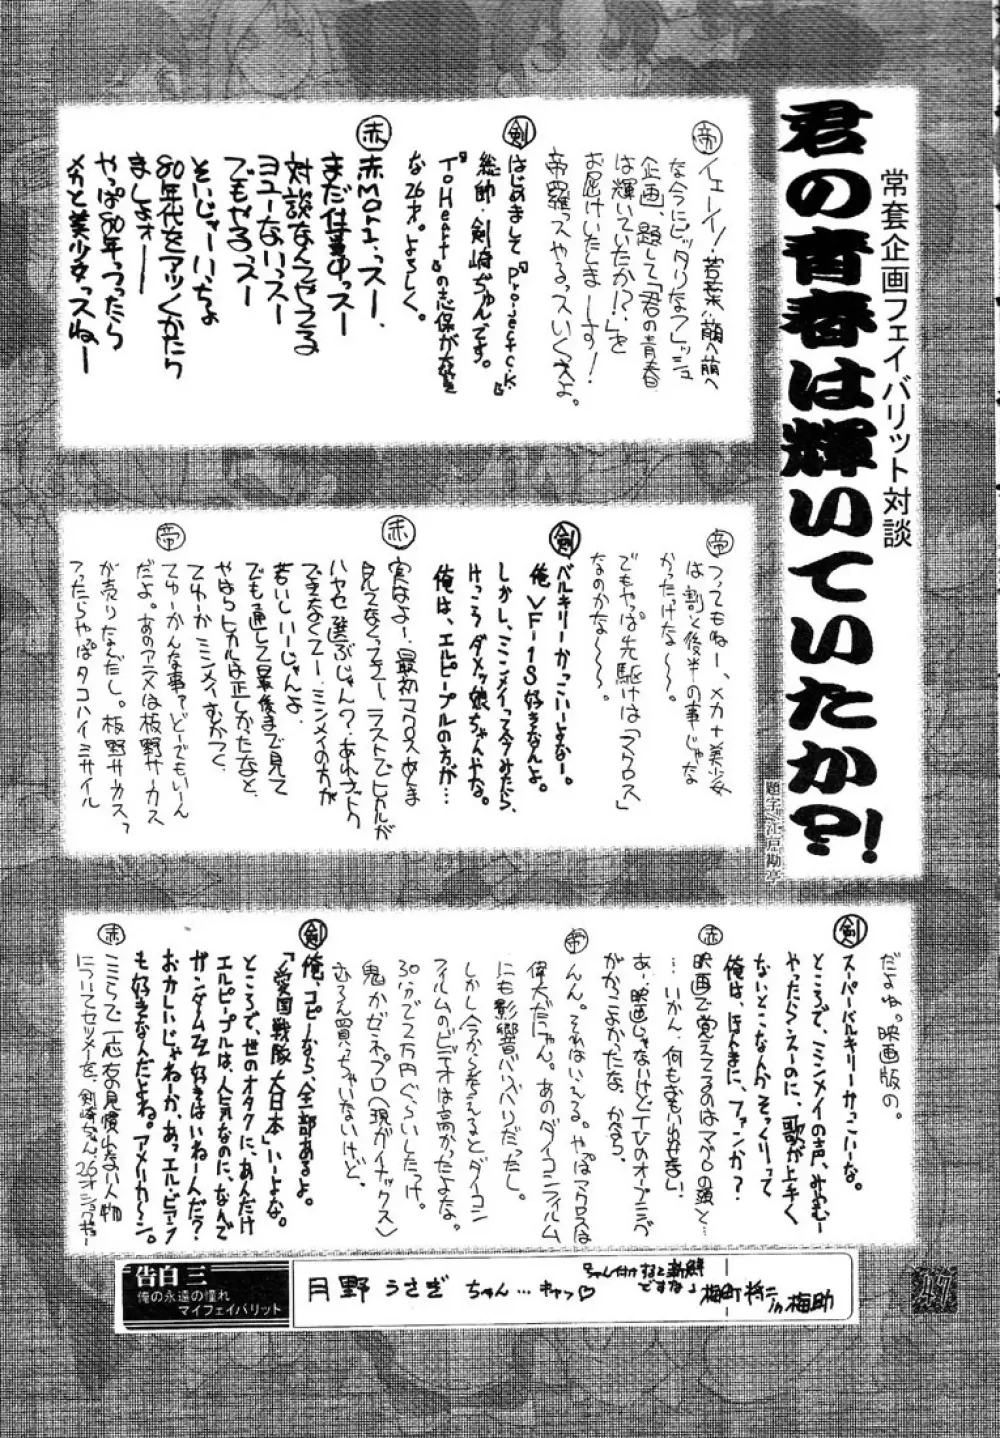 常套企画フェイバリット対談
君の青春は輝いていたか?!
題字/江戸勘亭
帝 イェーイ!若葉い萌へ萌へ
な今にピッタリなフレッシュ
企画、題して「君の青春
は輝いていたか!?」を
お届けいたしまーす!
帝羅っスやるっスいくぞよ。
剣 はじめまして『Project C.K.』
総帥・剣崎ぢゅんです。
『To Heart』の志保が好き
な26才。よろしく。
赤 赤Moriっスー
まだ仕事中っスー
対談なんてやってる
ヨユーないっスー
でもやるっスー
そいじゃーいっちょ
80年代をアツくかたり
ましょォー
やっぱ80年つったら
メカと美少女っスねー
帝 つってもねー、メカ+美少女
は割と後半の事じゃな
かったっけな〜〜。
でもやっぱ先駆けは「マクロス」
なのかな〜〜。
剣 バルキリーかっこいーよなー。
俺VF-1S好きなんよ。
しかし、ミンメイって今みたら、
けっこうダメッ娘ちゃんやな。
俺は、エルピープルの方が…
赤 実はよー、最初マクロスあんま
見てなくってさー、ラストでヒカルが
ハヤセ選ぶじゃん?あれナットク
できなくてー、ミンメイの方が
若いしいーじゃんよ。
でも通して最後まで見て
やはりヒカルは正しかったなと。
てゆーかミンメイむかつく。
帝 てゆーかんな事ァどーでもいーん
だよ。あのアニメは板野サーカス、
が売りなんだし。板野サーカス
つったらやっぱタコハイミサイル
だよね。映画版の。
剣 スーパーバルキリーかっこいーな。
ところで、ミンメイの声、みやむー
やったらシスーのに、歌が上手く
ないとこなんかそっくりって
俺は、ほんまに、ファンか?
赤 映画で覚えてるのはマグロの頭と
…いかん、何もおもい出せない
あ、映画じゃないけどTVのオープニング
がかっこよかったな。かなり。
帝 んん。それはいえる。やっぱマクロスは
偉大だにゃん。あのダイコンフィルム
にも影響バリバリだったし。
しかし今から考えるとダイコン
フィルムのビデオは高かったよな。
30分で2万円ぐらいしたっけ。
鬼かゼネプロ〈現ガイナックス〉
むろん買っちゃいないけど。
剣 俺、コピーなら、全部あるよ。
「愛國戦隊大日本」いーよな。
ところで、世のオタクに、あんだけ
エルピープルは、人気なのに、なんで
ガンダムZZ好きはいねーんだ?
おかしいじゃねーか、あっエル・ビアンノ
も好きなんだよね。アメリカーン。
赤 ここらで一応の見慣れない人物
についてセツメーを、剣崎ちゃん、26才
告白 三
俺の永遠の憧れ
マイフェイバリット
月野うさぎちゃん…キャッ♡
ちゃん付けすると新鮮
ですなぁ
梅町格二
in梅助
47